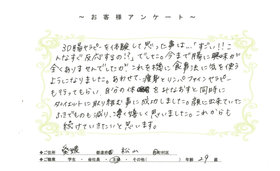 ～お客様アンケート～
30腸セラピーを体験して思った事は…"すごい!!こ
んなすぐ反応するの!?"でした。今まで腸に興味が
全くありませんでしたがこれを機に食事法に気を使う
ようになりました。あわせて、痩身とリンパファインセラピー
も行ってもらい、自分の体を知りなおすと同時に
ダイエットに取り組む事に成功しました。顔に出来ていた
おできものも減り、凄く嬉しく思いました。これからも
続けていきたいと思います。
●ご住所 愛媛 都道府県 松山 市町村区
●ご職業 学生・会社員・主婦・その他( ) ●年齢 29 歳